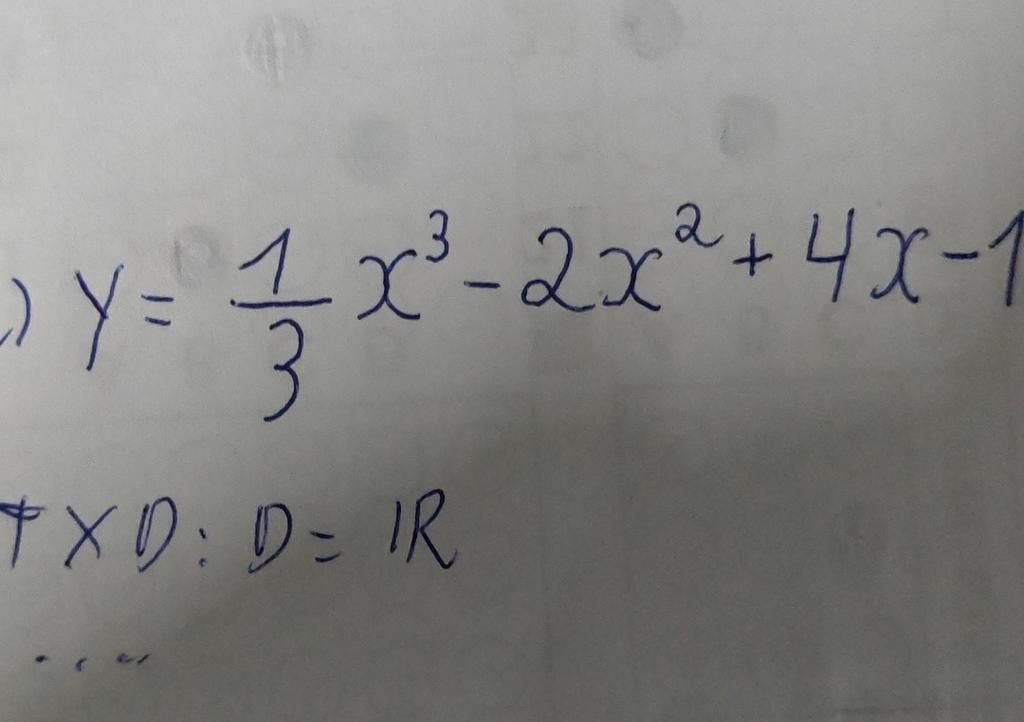 .) y = 1/3 x³ - 2x² + 4x - 1
TXD: D = ℝ
....